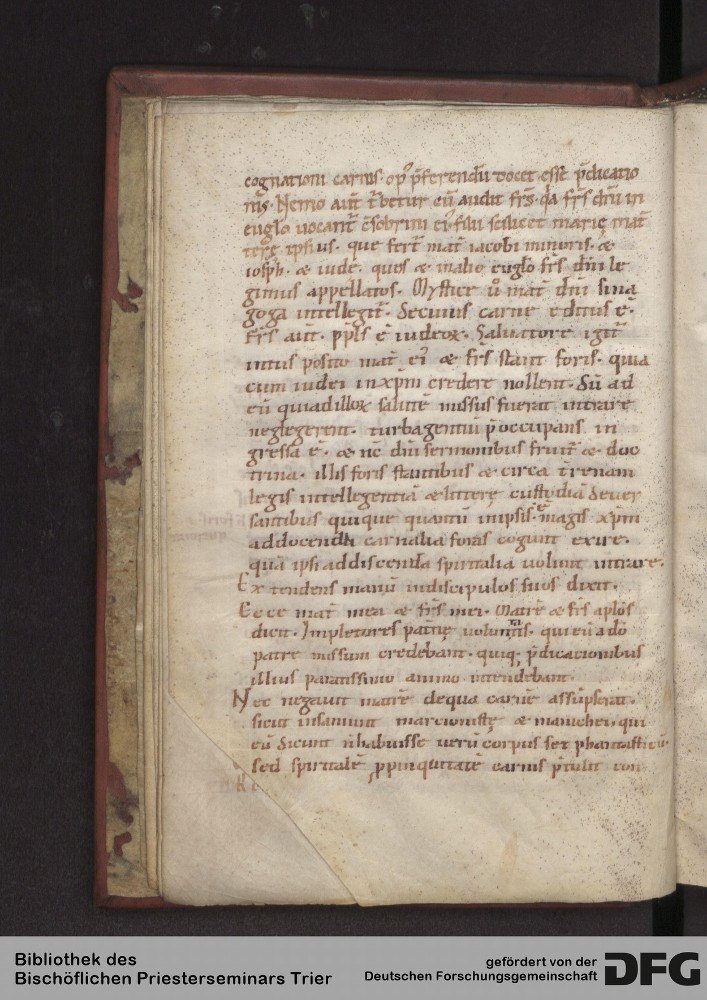 cognationi carnis · opꝰ p̄ferendū docet esse p̄dicatio
nis · Nemo aut̄ t̄betur cū audit fr̄s · dn̄i in
euglo uocant̄ c̄sobrini eiꝰ filii scilicet marie mat̄
terere ipsius · que fert̄ mat̄ iacobi minoris · æ
ioseph · æ iude · quos æ in alio euglo fr̄s dn̄i le
gimus appellatos · Mystice u̓ mat̄ dn̄i sina
goga intellegit̄ · De cuius carne editus ē ·
fr̄s aut̄ · ppls ē iudeoꝝ · Saluatore igit̄
intus posito mat̄ eiꝰ æ fr̄s stant foris · quia
cum iudei in xp̄m credere nollent · Sū ad
eū quia d illoꝝ salutē missus fuerat intrare
neglegerent · turba gentiū p̄occupans in
gressa ē · æ nc̄ dn̄i sermonibus fruit̄ æ · doc
trina · illis foris stantibus æ circa t̄renam
legis intellegentiā æ littere custodiā Seuer
santibus quique quantū in ipsis ē magis xp̄m
ad docenda carnalia foras cogunt exire ·
quā ipsi ad discenda spiritalia uolunt intrare ·
Extendens manū in discipulos suos dixit ·
Ecce mat̄ mea æ fr̄s mei · Matrē æ fr̄s aplōs
dicit · Impletores paterne uoluntatis · qui eū a dō
patre missum credebant · quiq; p̄dicationibus
illius paratissimo animo intendebant ·
Nec negauit matrē de qua carnē assūpserat ·
sicut insaniunt marcioniste æ manichei · qui
eū dicunt n̄ habuisse uerū corpus set phantasticū ·
sed spiritalē ꝓpinquitatē carnis p̄tulit con
Bibliothek des
Bischöflichen Priesterseminars Trier
gefördert von der
Deutschen Forschungsgemeinschaft
DFG